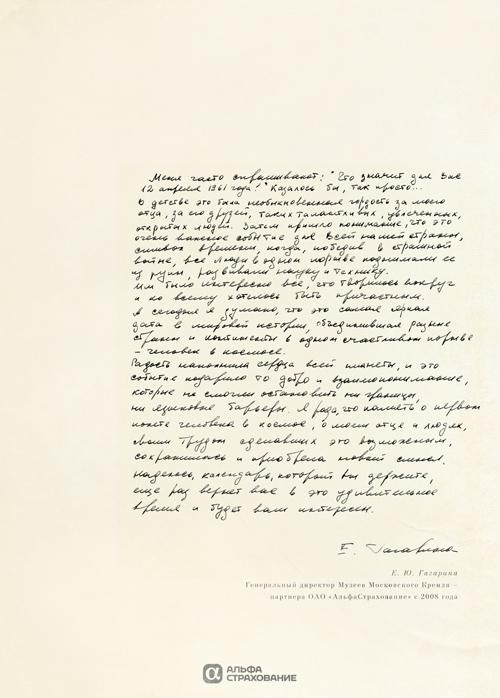 Меня часто спрашивают: "Что значит для Вас
12 апреля 1961 года?" Казалось бы, так просто...
В детстве это была необыкновенная гордость за моего
отца, за его друзей, таких талантливых, увлеченных,
открытых людей. Затем пришло понимание, что это
очень важное событие для всей нашей страны,
символ времени, когда, победив в страшной
войне, все люди в одном порыве поднимали ее
из руин, развивали науку и технику.
Им было интересно все, что творилось вокруг
и ко всему хотелось быть причастным.
А сегодня я думаю, что это самая яркая
дата в мировой истории, объединившая разные
страны и континенты в одном счастливом порыве
– человек в космосе.
Радость наполнила сердца всей планеты, и это
событие подарило то добро и взаимопонимание,
которые не смогли остановить ни границы,
ни языковые барьеры. Я рада, что память о первом
полете человека в космос, о моем отце и людях,
своим трудом сделавших это возможным,
сохранилась и приобрела новый смысл.
Надеюсь, календарь, который Вы держите,
еще раз вернет вас в это удивительное
время и будет вам интересен.
Е. Гагарина
Е. Ю. Гагарина
Генеральный директор Музеев Московского Кремля –
партнера ОАО «АльфаСтрахование» с 2008 года
АЛЬФА
СТРАХОВАНИЕ